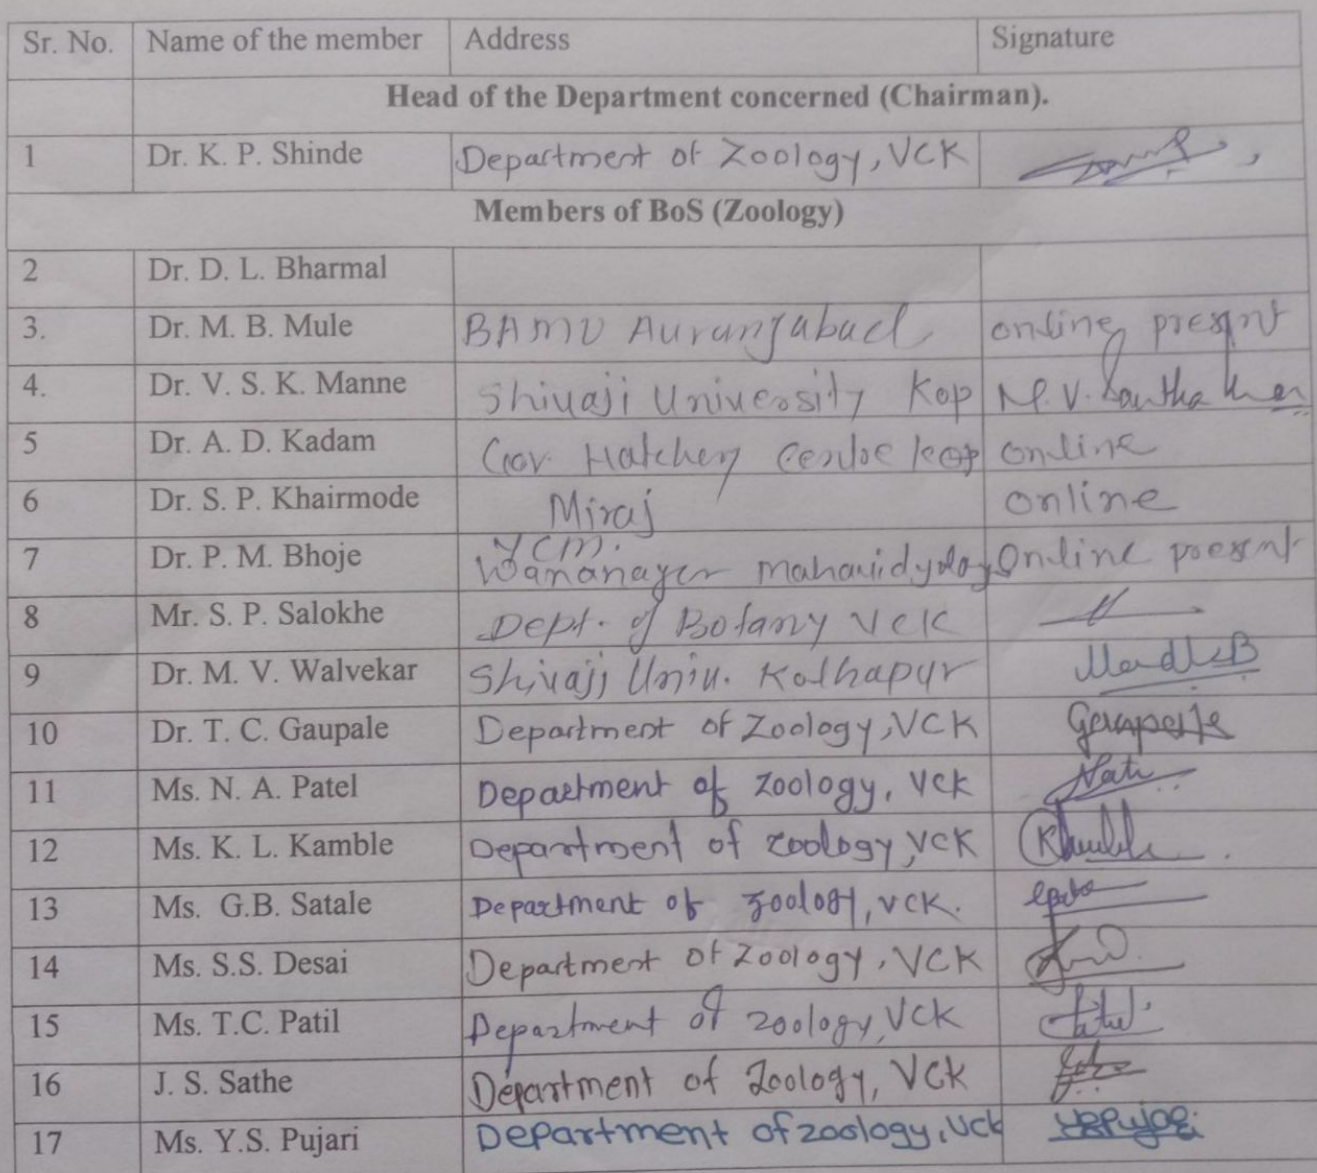 Sr. No. Name of the member Address Signature
Head of the Department concerned (Chairman).
1 Dr. K. P. Shinde Department of Zoology, VCK
Members of BoS (Zoology)
2 Dr. D. L. Bharmal
3. Dr. M. B. Mule BAMU Aurangabad online present
4. Dr. V. S. K. Manne Shivaji University Kop M. V.
5 Dr. A. D. Kadam Gov. Hatchery Centre kop online
6 Dr. S. P. Khairmode Miraj online
7 Dr. P. M. Bhoje Y C M. Warananager mahavidyalay Online present
8 Mr. S. P. Salokhe Dept. of Botany VCK
9 Dr. M. V. Walvekar Shivaji Univ. Kolhapur
10 Dr. T. C. Gaupale Department of Zoology, VCK
11 Ms. N. A. Patel Department of Zoology, VCK
12 Ms. K. L. Kamble Department of zoology, VCK
13 Ms. G.B. Satale Department of zoology, VCK.
14 Ms. S.S. Desai Department of Zoology, VCK
15 Ms. T.C. Patil Department of zoology, VCK
16 J. S. Sathe Department of Zoology, VCK
17 Ms. Y.S. Pujari Department of zoology, Vck YSPujari